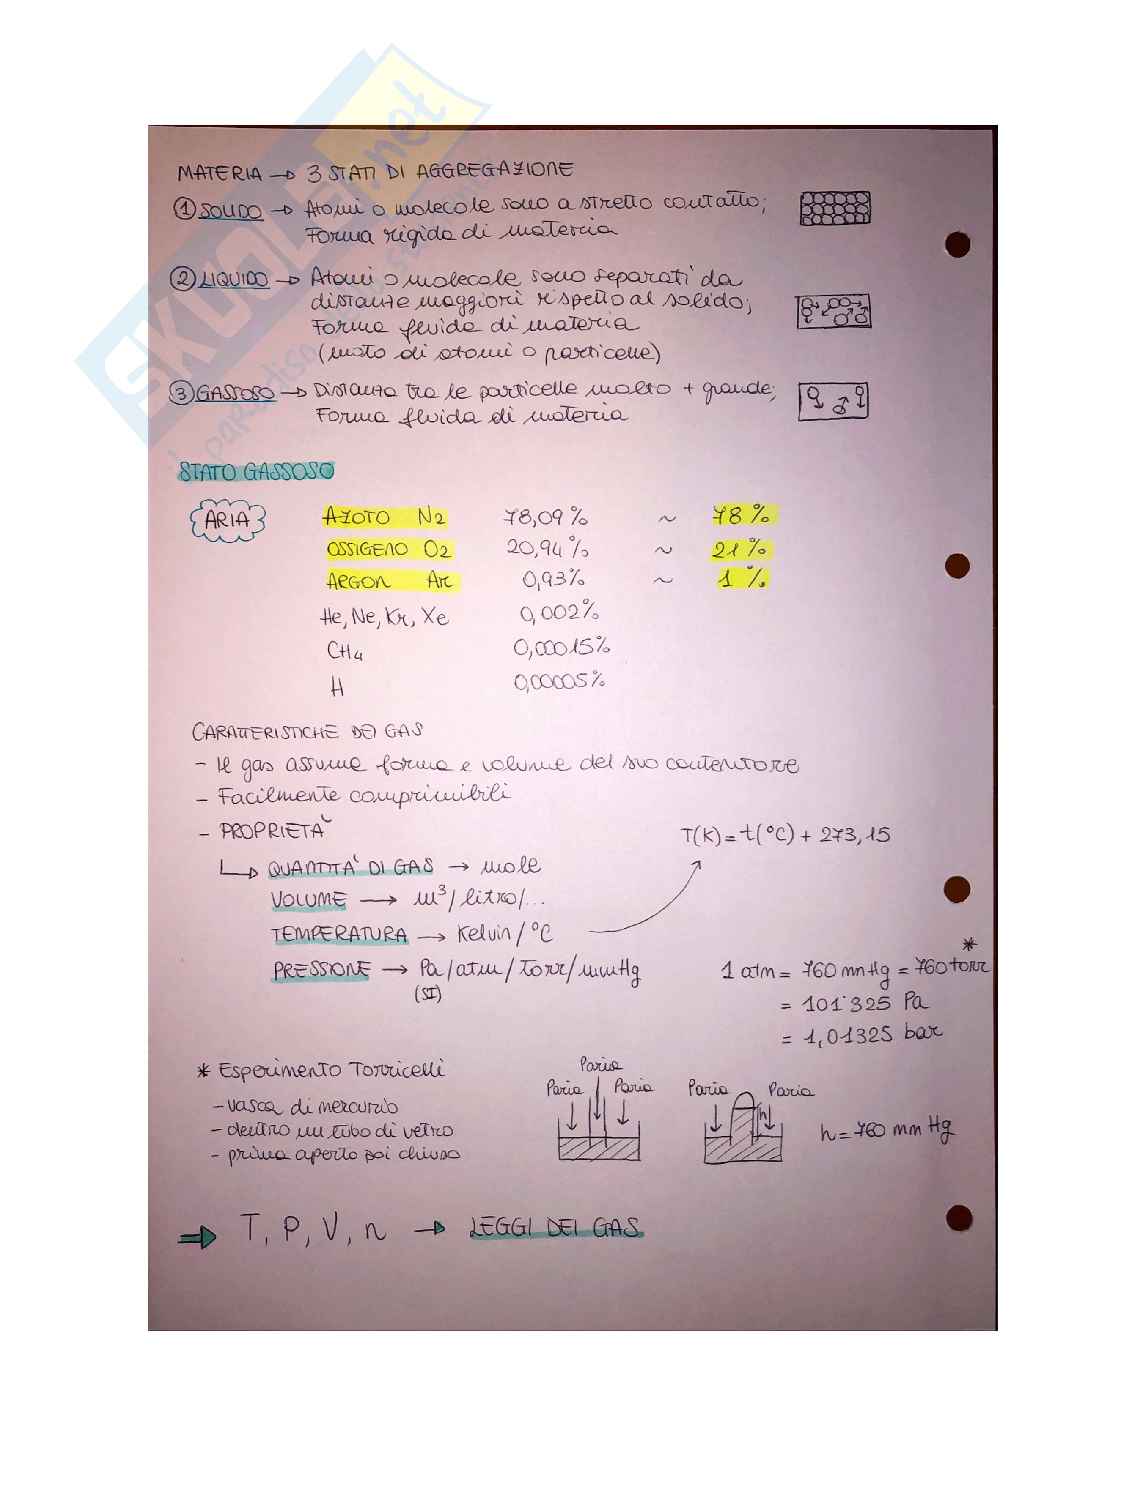 MATERIA → 3 STATI DI AGGREGAZIONE
① SOLIDO → Atomi o molecole sono a stretto contatto;
Forma rigida di materia
② LIQUIDO → Atomi o molecole sono separati da
distanze maggiori rispetto al solido;
Forma fluida di materia
(moto di atomi o particelle)
③ GASSOSO → Distanza tra le particelle molto + grande;
Forma fluida di materia
STATO GASSOSO
ARIA AZOTO N2 78,09% ~ 78%
OSSIGENO O2 20,94% ~ 21%
ARGON Ar 0,93% ~ 1%
He, Ne, Kr, Xe 0,002%
CH4 0,00015%
H 0,00005%
CARATTERISTICHE DEI GAS
- Il gas assume forma e volume del suo contenitore
- Facilmente comprimibili
- PROPRIETÀ
T(K) = t(°C) + 273,15
↳ QUANTITÀ DI GAS → mole
VOLUME → m³/litro/...
TEMPERATURA → Kelvin/°C
PRESSIONE → Pa/atm/Torr/mmHg
(SI)
1 atm = 760 mmHg = 760 torr *
= 101'325 Pa
= 1,01325 bar
* Esperimento Torricelli
- vasca di mercurio
- dentro un tubo di vetro
- prima aperto poi chiuso
Paria
Paria Paria
Paria Paria
h
h = 760 mm Hg
⇒ T, P, V, n → LEGGI DEI GAS
SKUOLA.net